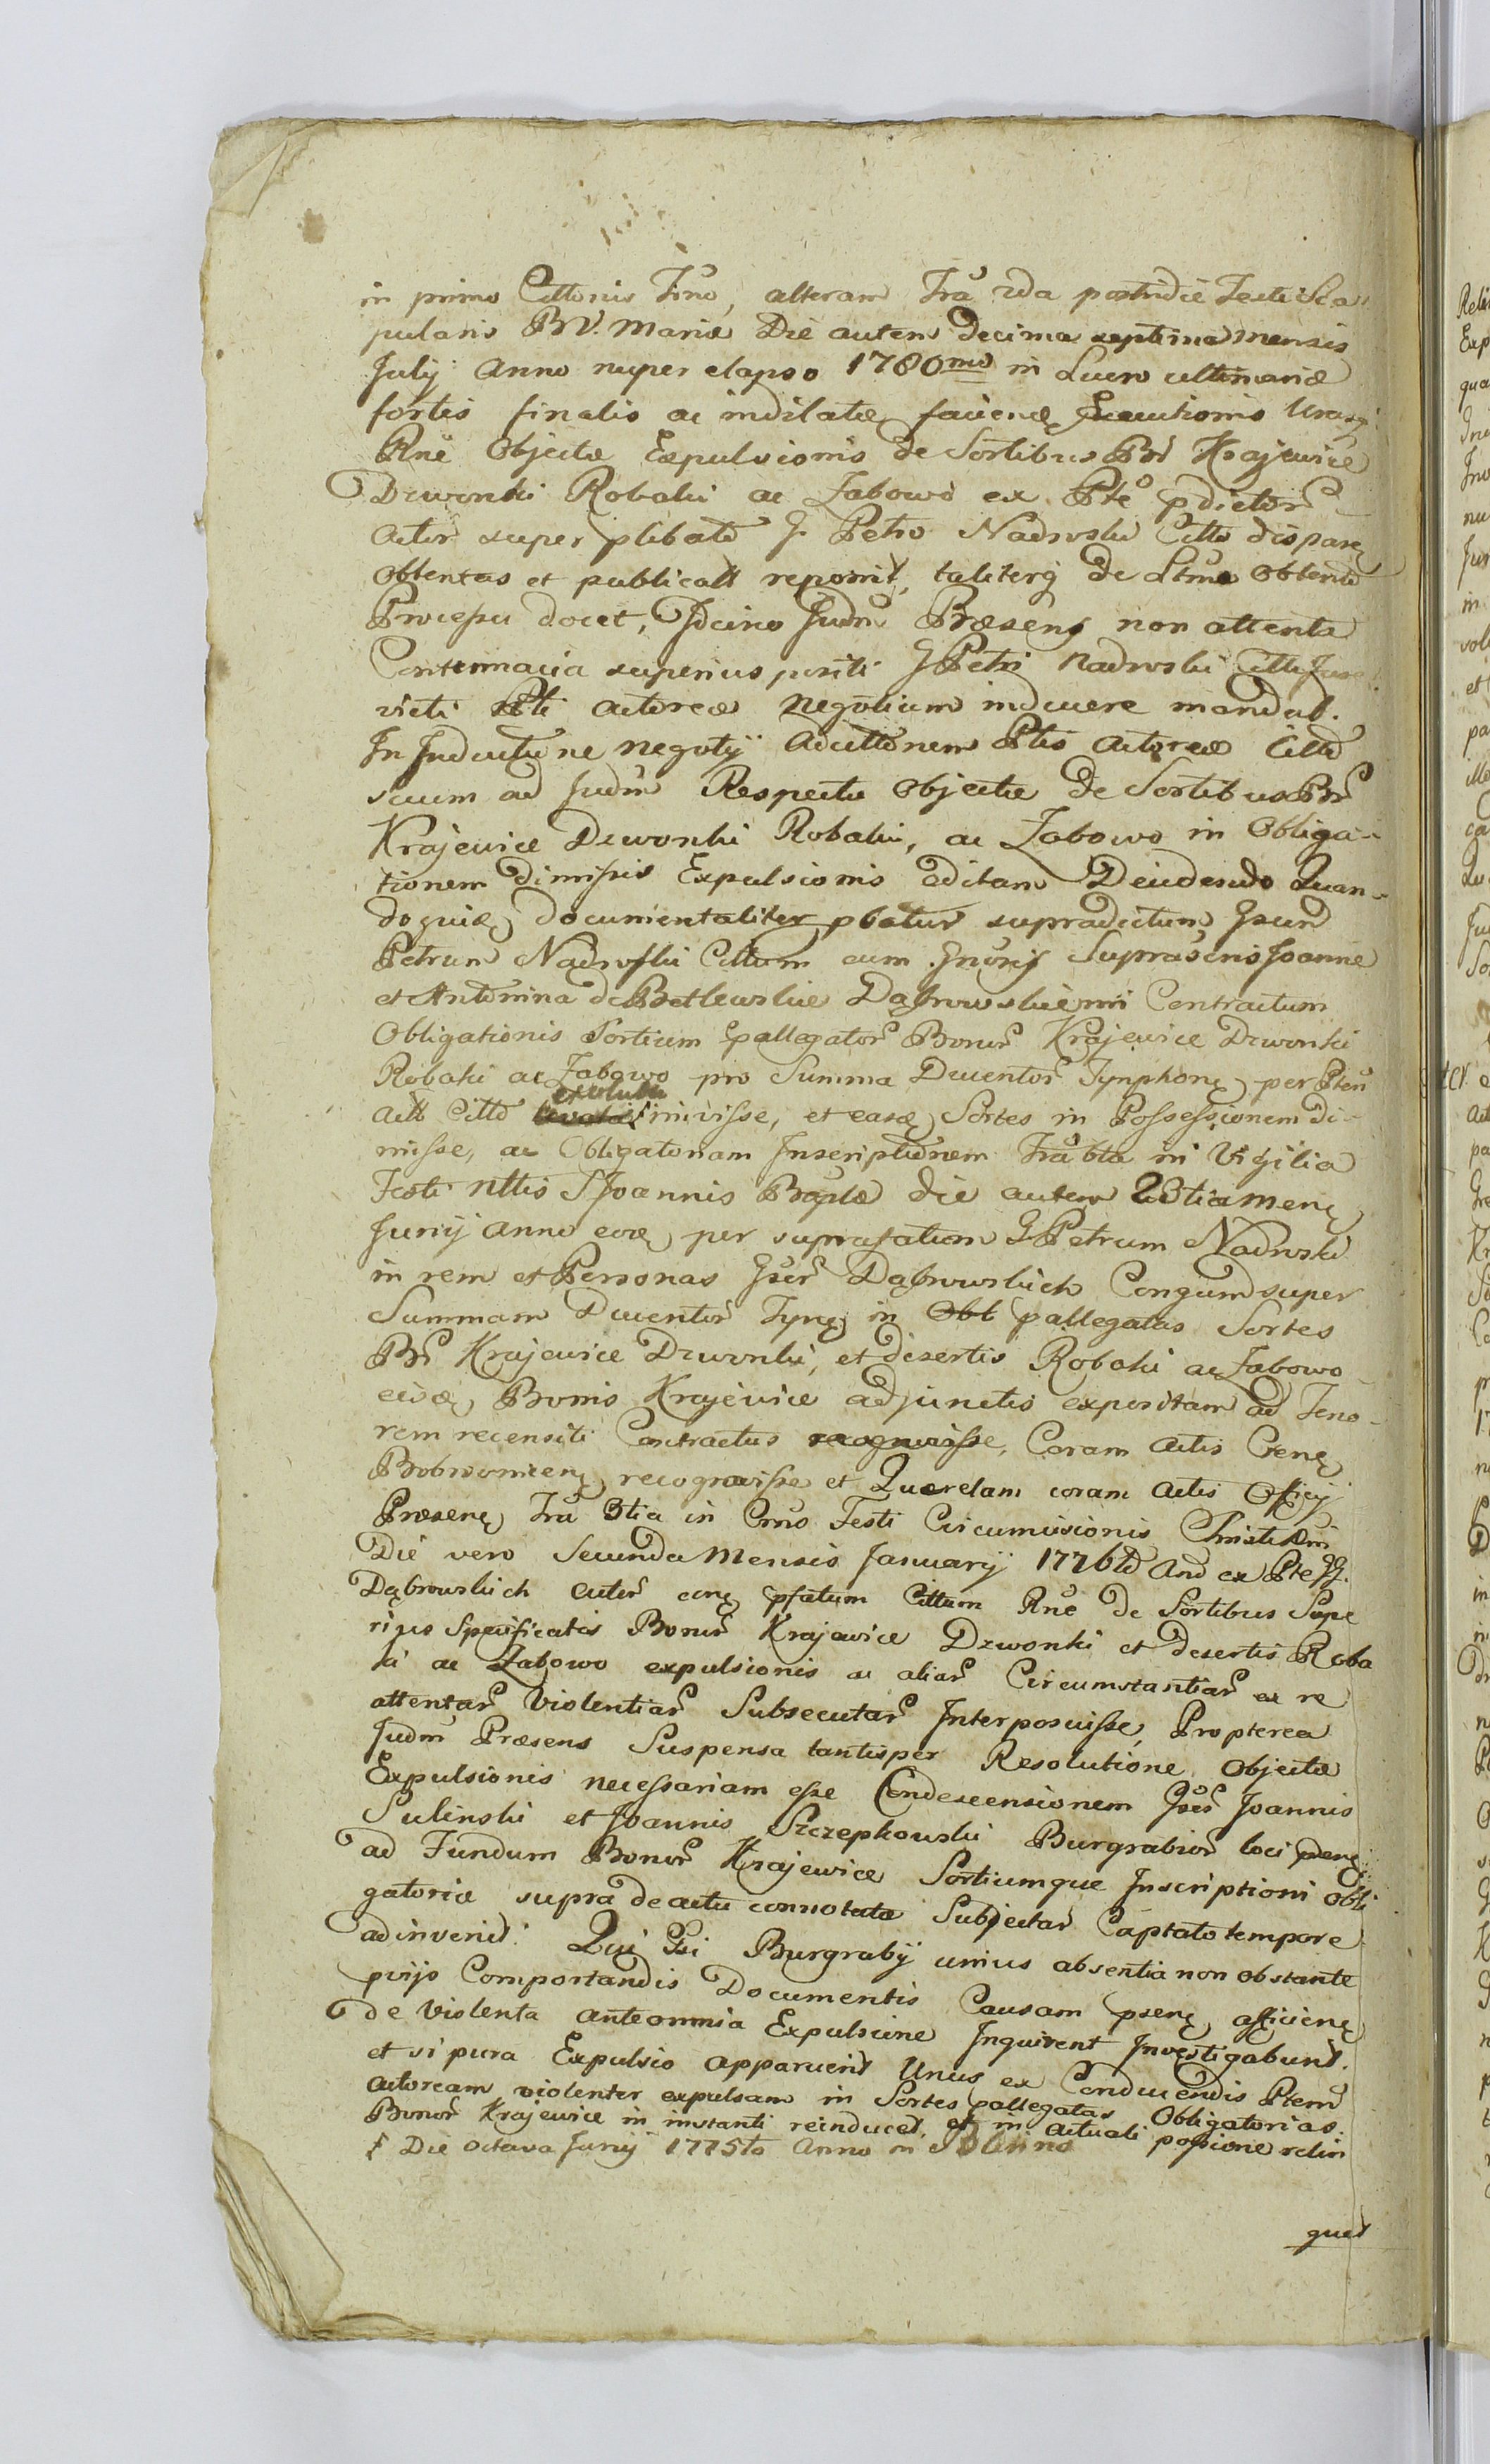 in primo Cittonis Trno, alteram Fra 2da postridie Festi Sca
pularis BV. Mariæ Die autem decima septima mensis
July Anno nuper elapso 1780mo in Lucro ultimariæ
fortis finalis ac indilatæ faciende Executionis
Rne Objectæ Expulsionis de Sortibus Br Krajewice
Dzwonki Robaki ac Zabowo ex Pte pdictor
Actor super plibato G Petro Nadroski Citto dispare
obtentas et publicatt reponit, taliterq de Ltmo obtento
Processu docet, Idcirco Judm Præsens non attenta
Contumacia superius positi G Petri Nadroski Citti Jure
victi Pti Actoreæ Negotium inducere mandat.
In Inductione negotij Adcittonem Ptis Actoreæ Citto
suum ad Judm Respectu Objectæ de Sortibus Br
Krajewice Dzwonki Robaki, ac Zabowo in Obliga-
tionem dimissis Expulsionis editam Decidendo Quan-
doquidem documentaliter pbatur supradictum Gsum
Petrum Nadroski Cittum cum Gnosis Suprascris Joanne
et Antonina de Betlewskie Dąbrowskiemi Contractum
Obligationis Sortium pallegator Bonor Krajewice Dzwonki
Robaki ac Zabowo pro Summa Ducentor Tynphone per Ptem
Actt Citto exoluta inivisse, et easdem Sortes in Possessionem di-
misse, ac Obligatoriam Inscriptionem Fra 6ta in Vigilia
Festi Nttis S Joannis Baptæ die autem 23tia mens
Junij anno eode per suprafatum G Petrum Nadroski
in rem et Personas Gser Dąbrowskich Congum super
Summam Ducentor Tynę in Obl pallegatas Sortes
Br Krajewice Dzwonki, et desertis Robaki ac Zabowo
eisdem Bonis Krajewice adjunctis expositam ad Teno-
rem recensiti Contractus recognovisse, Coram Actis Crens
Bobrownicens recognovisse et Querelam coram Actis Officij
Præsens Fra 3tia in Crno Festi Circumcisionis Christi Dni
Die vero Secunda Mensis January 1776to Ano ex Pte GG.
Dąbrowskich Actor cone pfatum Cittum Rne de Sortibus Supe
rius Specificatis Bonor Krajewice Dzwonki et desertis Roba
ki ac Zabowo expulsionis ac aliar Circumstantiar ex re
attentar Violentiar Subsecutar Interposuisse, Propterea
Judm Præsens Suspensa tantisper Resolutione Objectæ
Expulsionis necessariam esse Condescensionem Gser Joannis
Sulinski et Joannis Szczepkowski Burgrabior loci psens
ad Fundum Bonor Krajewice Sortiumque Inscriptioni obli
gatoriæ supra de actu connotatæ Subjectar Captato tempore
adinvenit. Qui Gsi Burgrabij unius absentia non obstante
prijs Comportandis Documentis Causam psens afficiens
de Violenta anteomnia Expulsione Inquirent Investigabunt.
et si pura Expulsio apparuerit Unus ex Conducendis Ptem
actoream violenter expulsam in Sortes pallegatas Obligatorias
Bonor Krajewice in instanti reinducet, et in actuali possione relin
f Die octava Junij 1775to Anno in
quet